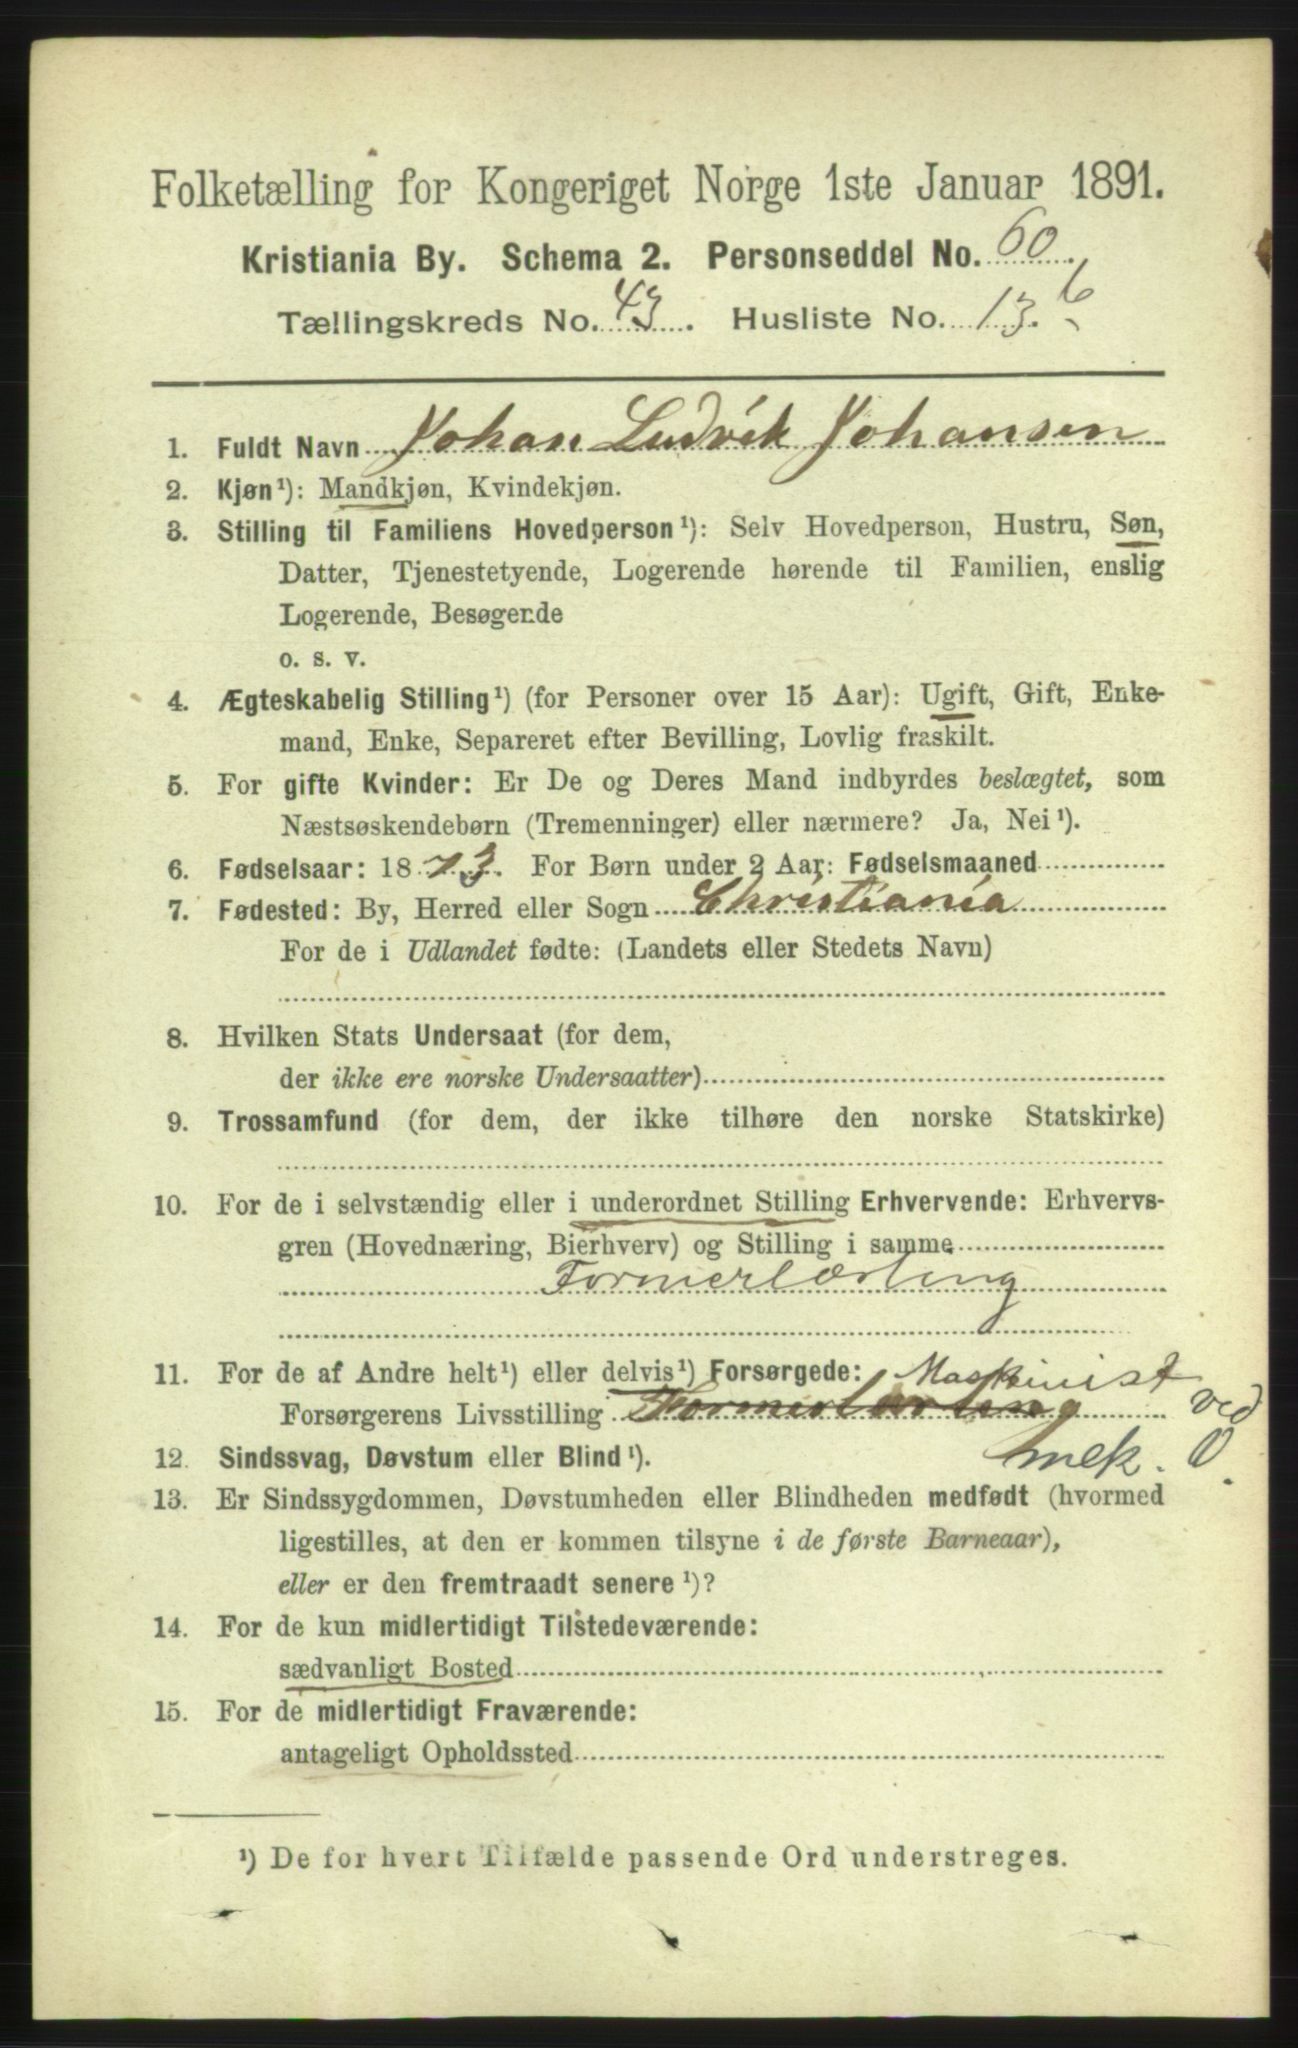 Folketælling for Kongeriget Norge 1ste Januar 1891.
Kristiania By. Schema 2. Personseddel No. 60.
Tællingskreds No. 43. Husliste No. 13. 6
1. Fuldt Navn Johan Ludvik Johansen
2. Kjøn¹): Mandkjøn, Kvindekjøn.
3. Stilling til Familiens Hovedperson¹): Selv Hovedperson, Hustru, Søn,
Datter, Tjenestetyende, Logerende hørende til Familien, enslig
Logerende, Besøgende
o. s. v.
4. Ægteskabelig Stilling¹) (for Personer over 15 Aar): Ugift, Gift, Enke-
mand, Enke, Separeret efter Bevilling, Lovlig fraskilt.
5. For gifte Kvinder: Er De og Deres Mand indbyrdes beslægtet, som
Næstsøskendebørn (Tremenninger) eller nærmere? Ja, Nei¹).
6. Fødselsaar: 1873. For Børn under 2 Aar: Fødselsmaaned
7. Fødested: By, Herred eller Sogn Christiania
For de i Udlandet fødte: (Landets eller Stedets Navn)
8. Hvilken Stats Undersaat (for dem,
der ikke ere norske Undersaatter)
9. Trossamfund (for dem, der ikke tilhøre den norske Statskirke)
10. For de i selvstændig eller i underordnet Stilling Erhvervende: Erhvervs-
gren (Hovednæring, Bierhverv) og Stilling i samme
Formerlærling
11. For de af Andre helt¹) eller delvis¹) Forsørgede: Maskinist
Forsørgerens Livsstilling Formerlærling ved
12. Sindssvag, Døvstum eller Blind¹). mek. V.
13. Er Sindssygdommen, Døvstumheden eller Blindheden medfødt (hvormed
ligestilles, at den er kommen tilsyne i de første Barneaar),
eller er den fremtraadt senere¹)?
14. For de kun midlertidigt Tilstedeværende:
sædvanligt Bosted
15. For de midlertidigt Fraværende:
antageligt Opholdssted
¹) De for hvert Tilfælde passende Ord understreges.